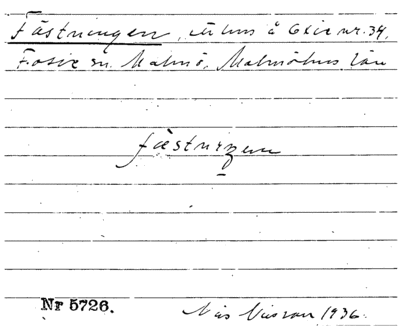 Fästningen, uthus å Oxie nr. 34,
Fosie sn. Malmö, Malmöhus län
fæstnizen
Nr 5726.
Nils Nilsson 1936.